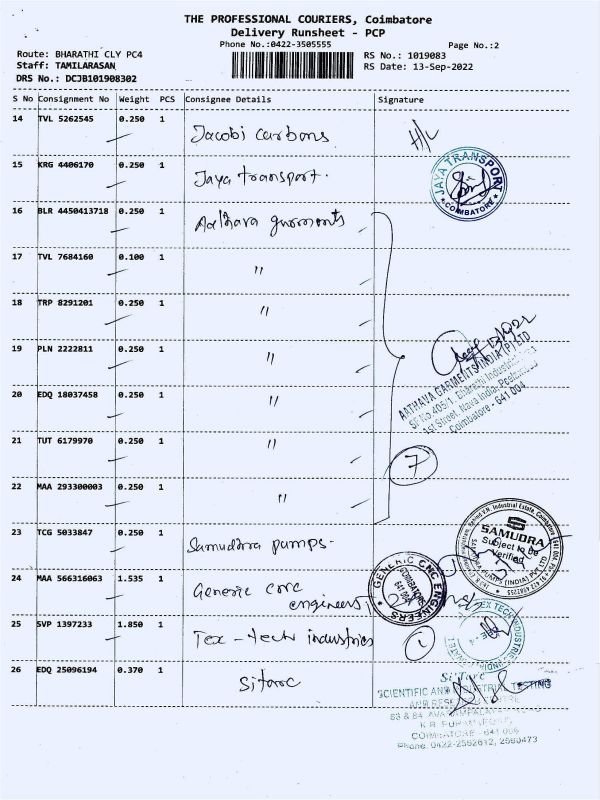 THE PROFESSIONAL COURIERS, Coimbatore
Delivery Runsheet - PCP
Phone No.:0422-3505555
Page No.:2
Route: BHARATHI CLY PC4
RS No.: 1019083
Staff: TAMILARASAN
RS Date: 13-Sep-2022
DRS No.: DCJB101908302
S No Consignment No Weight PCS Consignee Details Signature
14 TVL 5262545 0.250 1 Jacobi carbons H/L
15 KRG 4406170 0.250 1 Jaya transport.
JAYA TRANSPORT
* COIMBATORE *
16 BLR 4450413718 0.250 1 Aathava garments
17 TVL 7684160 0.100 1 "
18 TRP 8291201 0.250 1 "
19 PLN 2222811 0.250 1 "
AATHAVA GARMENTS INDIA (P) LTD
SF No 405/1, Bharathi Industrial
1st Street, Nava India,
Coimbatore - 641 004
20 EDQ 18037458 0.250 1 "
21 TUT 6179970 0.250 1 "
7
22 MAA 293300003 0.250 1 "
23 TCG 5033847 0.250 1 Samudra pumps-
SAMUDRA
Subject to be
Verified
SAMUDRA PUMPS (INDIA) PVT LTD
24 MAA 566316063 1.535 1 Generic cnc
engineers
GENERIC CNC ENGINEERS
COIMBATORE
641 004
25 SVP 1397233 1.850 1 Tex - tech industries
TEX TECH INDUSTRIES
26 EDQ 25096194 0.370 1 Sitarc
Si'Tarc
SCIENTIFIC AND INDUSTRIAL TESTING
AND RESEARCH CENTRE
83 & 84, AVARAMPALAYAM ROAD
K.R. PURAM POST,
COIMBATORE - 641 006
Phone: 0422-2562612, 2560473